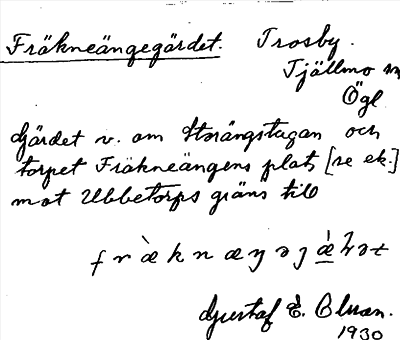 Fräkneängegärdet. Trosby.
Tjällmo sn
Ögl
Gärdet v. om Storängstugan och
torpet Fräkneängens plats [se ek.]
mot Ubbetorps gräns till
Gustaf E.
1930